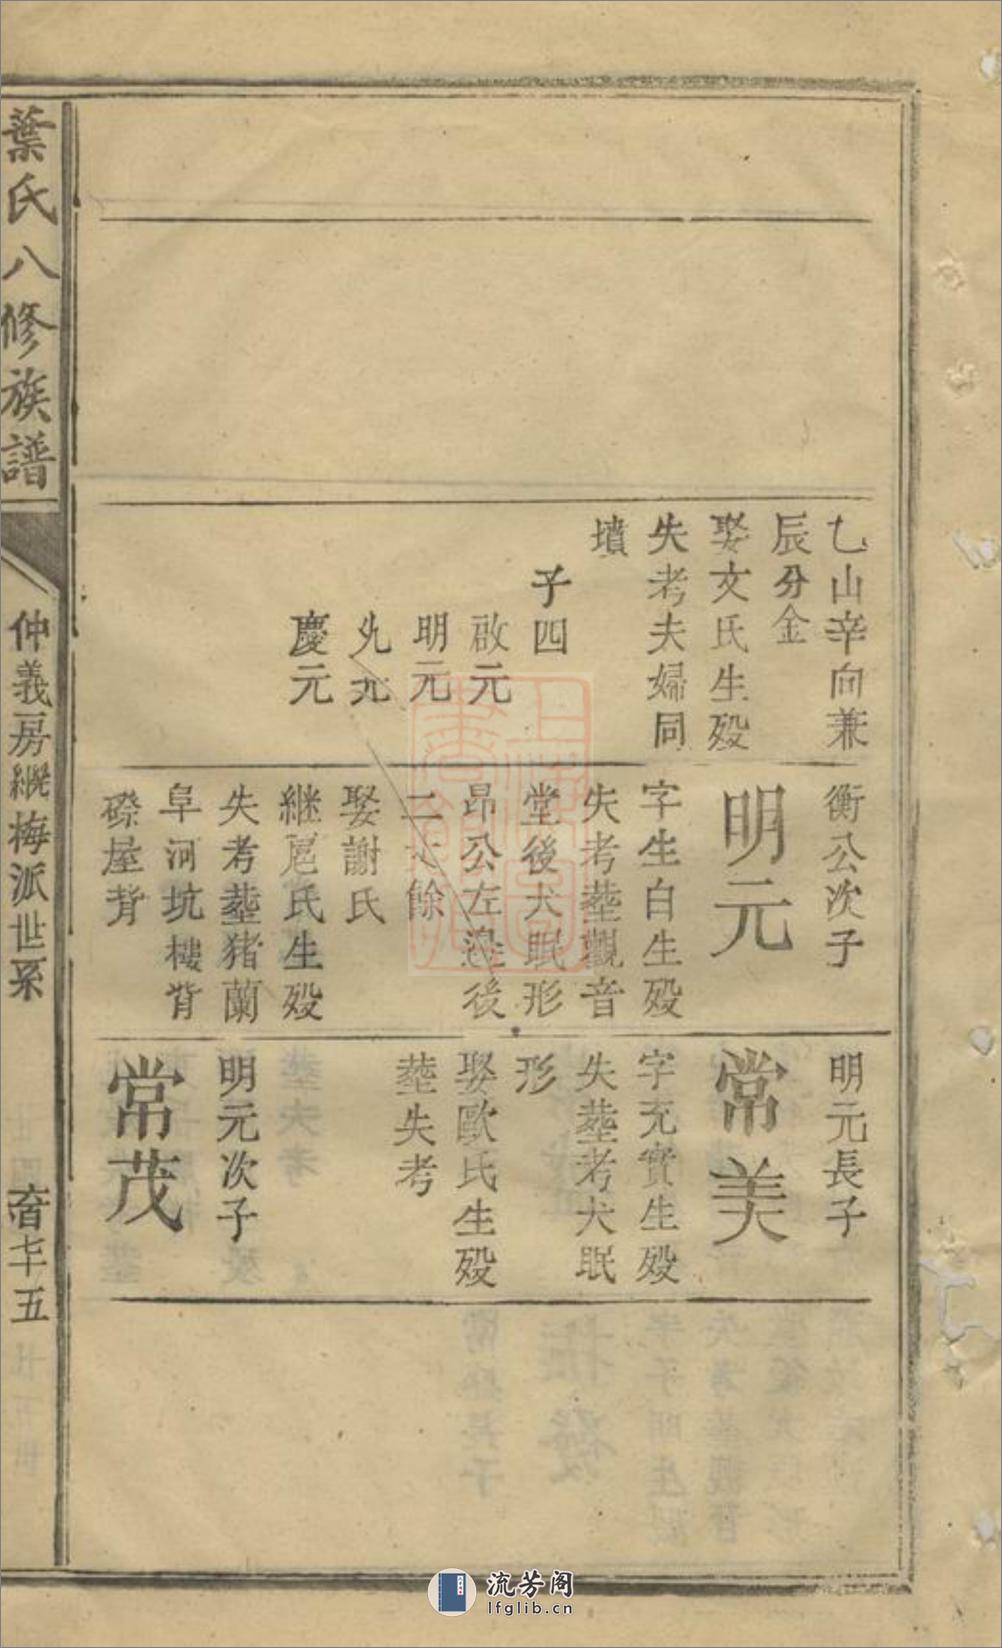 乙山辛向兼
辰分金
娶文氏生殁
失考夫婦同
墳
子四
啟元
明元
允元
慶元
衡公次子
明元
字生白生殁
失考塟觀音
堂後犬眠形
昂公左邉後
二丈餘
娶謝氏
継危氏生殁
失考塟猪蘭
阜河坑樓背
磜屋背
明元長子
常美
字充實生殁
失塟考犬眠
形
娶歐氏生殁
塟失考
明元次子
常茂
葉氏八修族譜
仲義房繼梅派世系
五
流芳阁
lfglib.cn